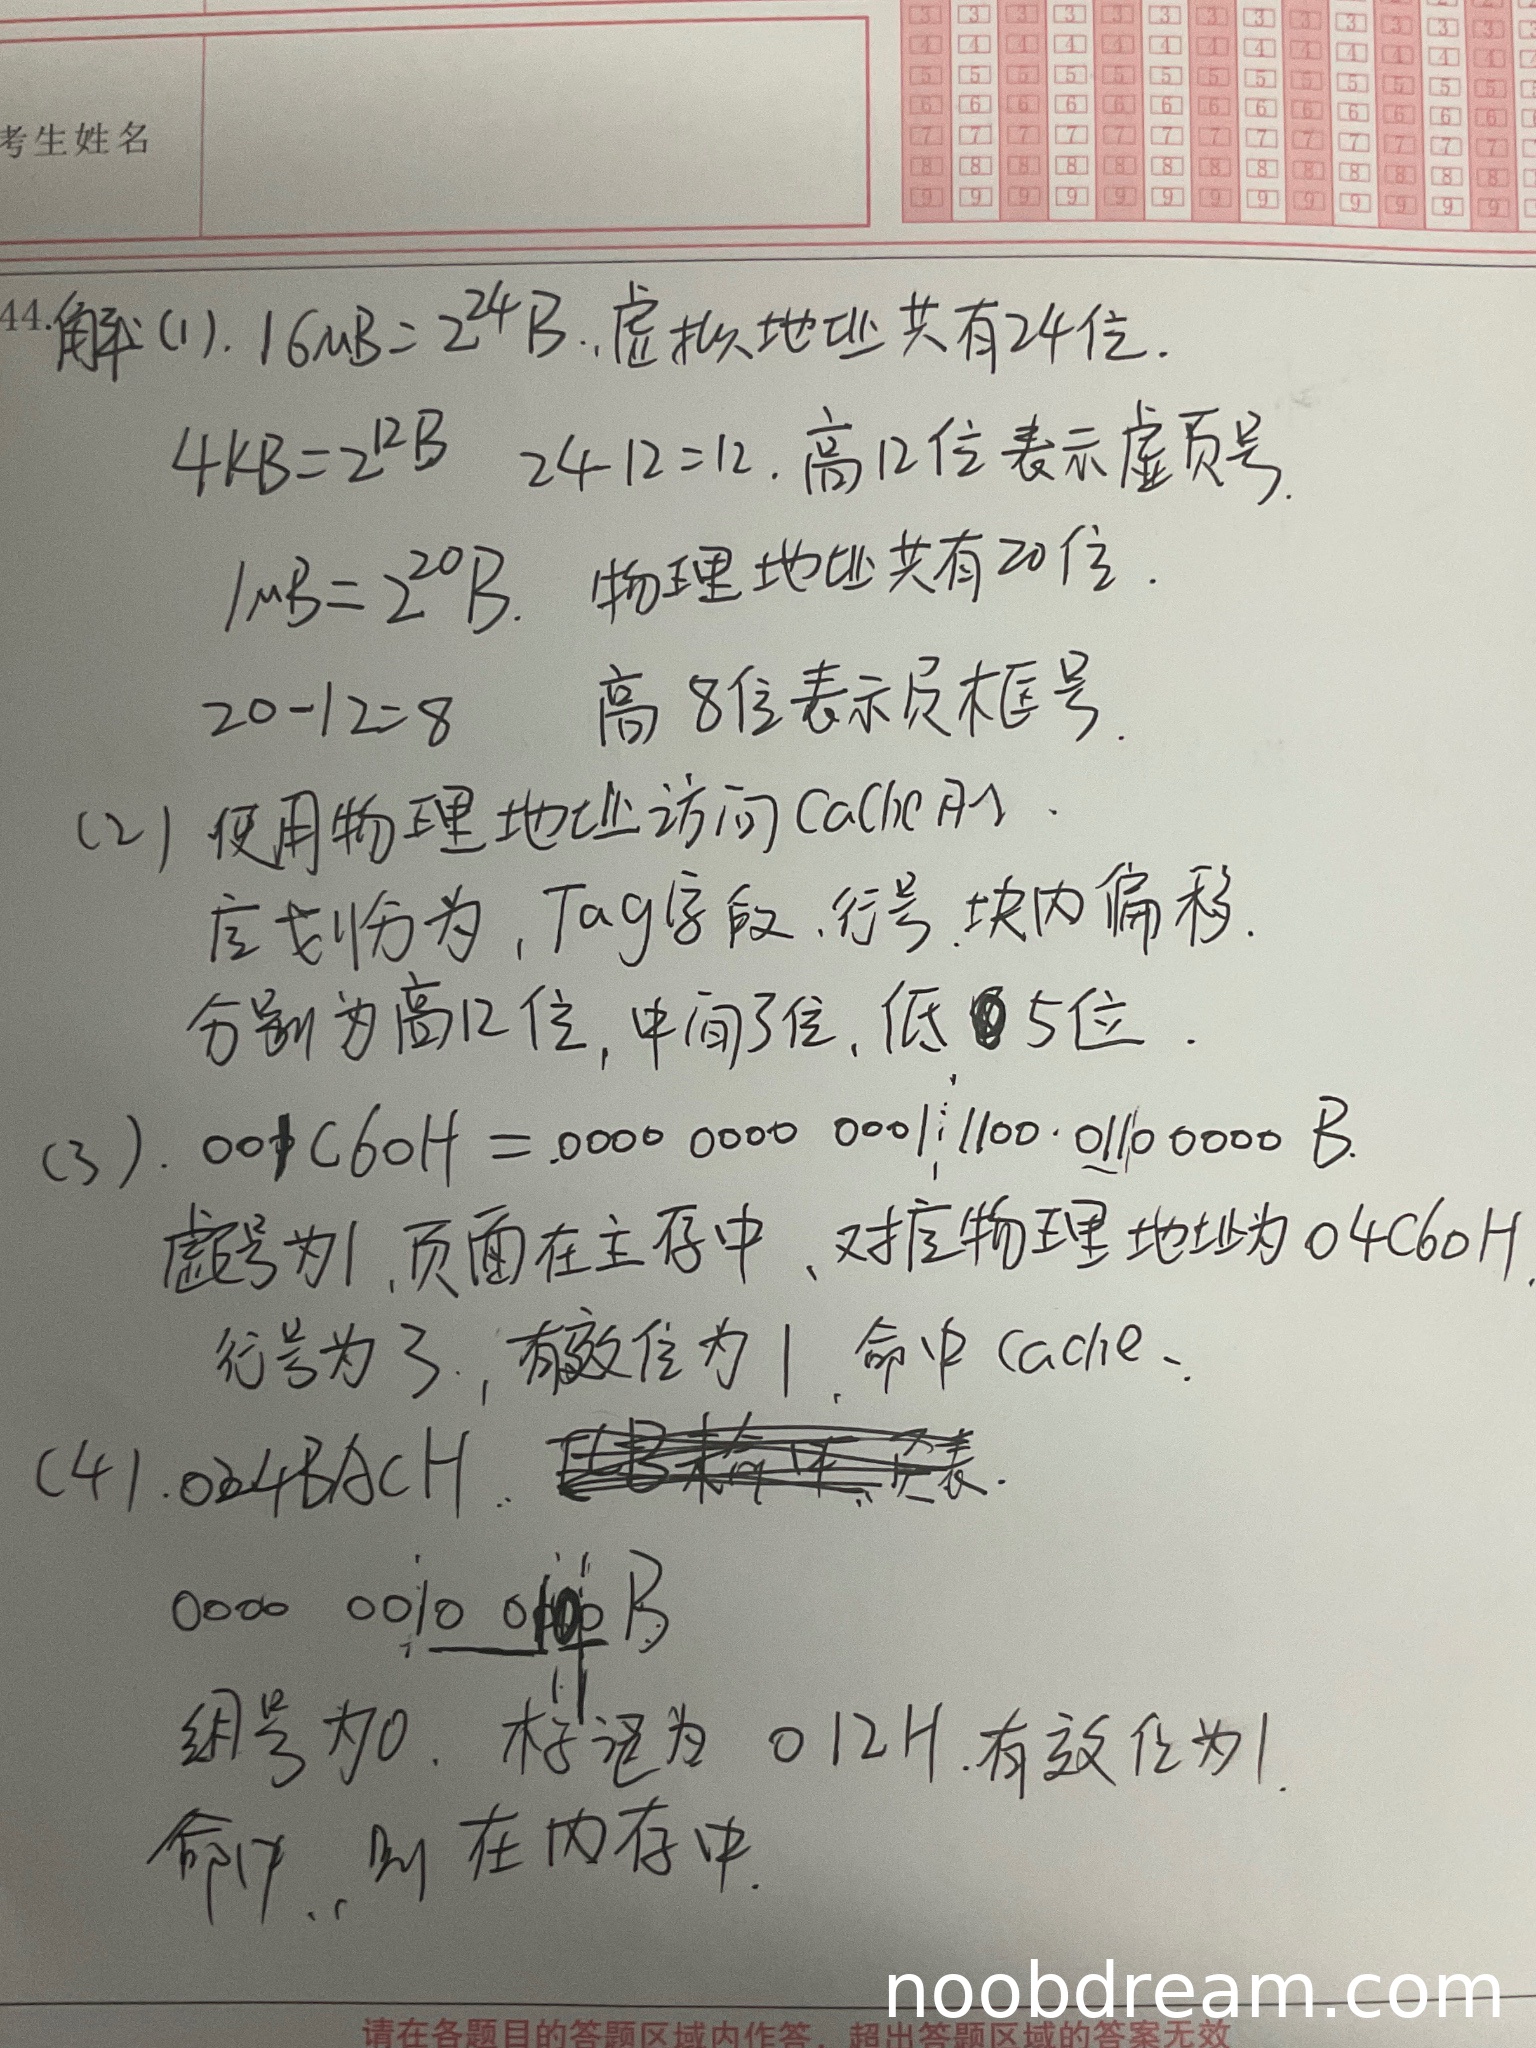 3 3 3 3 3 3 3 3 3 3 3 3 3
4 4 4 4 4 4 4 4 4 4 4 4 4
5 5 5 5 5 5 5 5 5 5 5 5 5
6 6 6 6 6 6 6 6 6 6 6 6 6
7 7 7 7 7 7 7 7 7 7 7 7 7
8 8 8 8 8 8 8 8 8 8 8 8 8
9 9 9 9 9 9 9 9 9 9 9 9 9
考生姓名
44.解:(1). 16MB=2^24B.,虚拟地址共有24位.
4KB=2^12B 24-12=12. 高12位表示虚页号.
1MB=2^20B. 物理地址共有20位.
20-12=8 高8位表示页框号.
(2) 使用物理地址访问Cache时.
应划分为,Tag字段、行号、块内偏移.
分别为高12位,中间3位,低5位.
(3). 001C60H = 0000 0000 0001 1100 0110 0000 B.
虚页号为1,页面在主存中、对应物理地址为04C60H.
行号为3.,有效位为1,命中Cache、
(4).024BACH.
0000 0010 0100 B
组号为0. 标记为 012H.有效位为1.
命中.,则在内存中.
noobdream.com
请在各题目的答题区域内作答,超出答题区域的答案无效